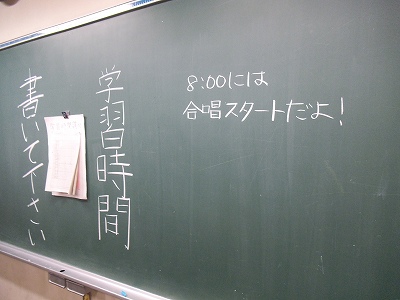 学習時間
書いて下さい
8:00には
合唱スタートだよ!